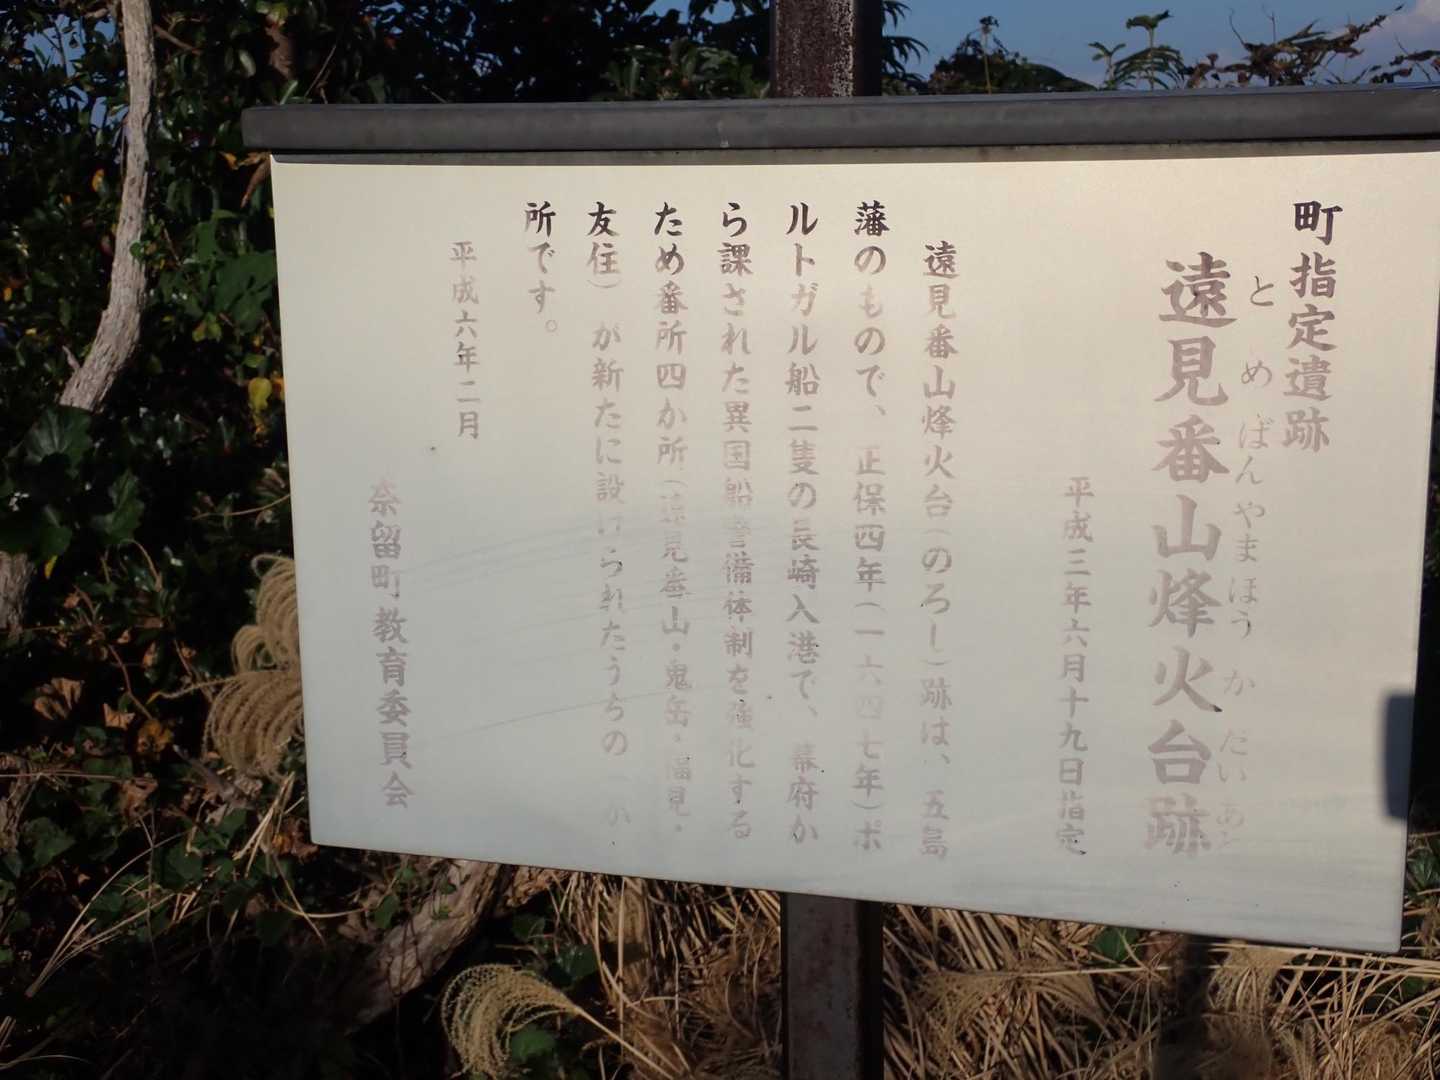 町指定遺跡
とめばんやまほうかだいあと
遠見番山烽火台跡
平成三年六月十九日指定
遠見番山烽火台(のろし)跡は、五島
藩のもので、正保四年(一六四七年)ポ
ルトガル船二隻の長崎入港で、幕府か
ら課された異国船警備体制を強化する
ため番所四か所(遠見番山・鬼岳・福見・
友住)が新たに設けられたうちの か
所です。
平成六年二月
奈留町教育委員会